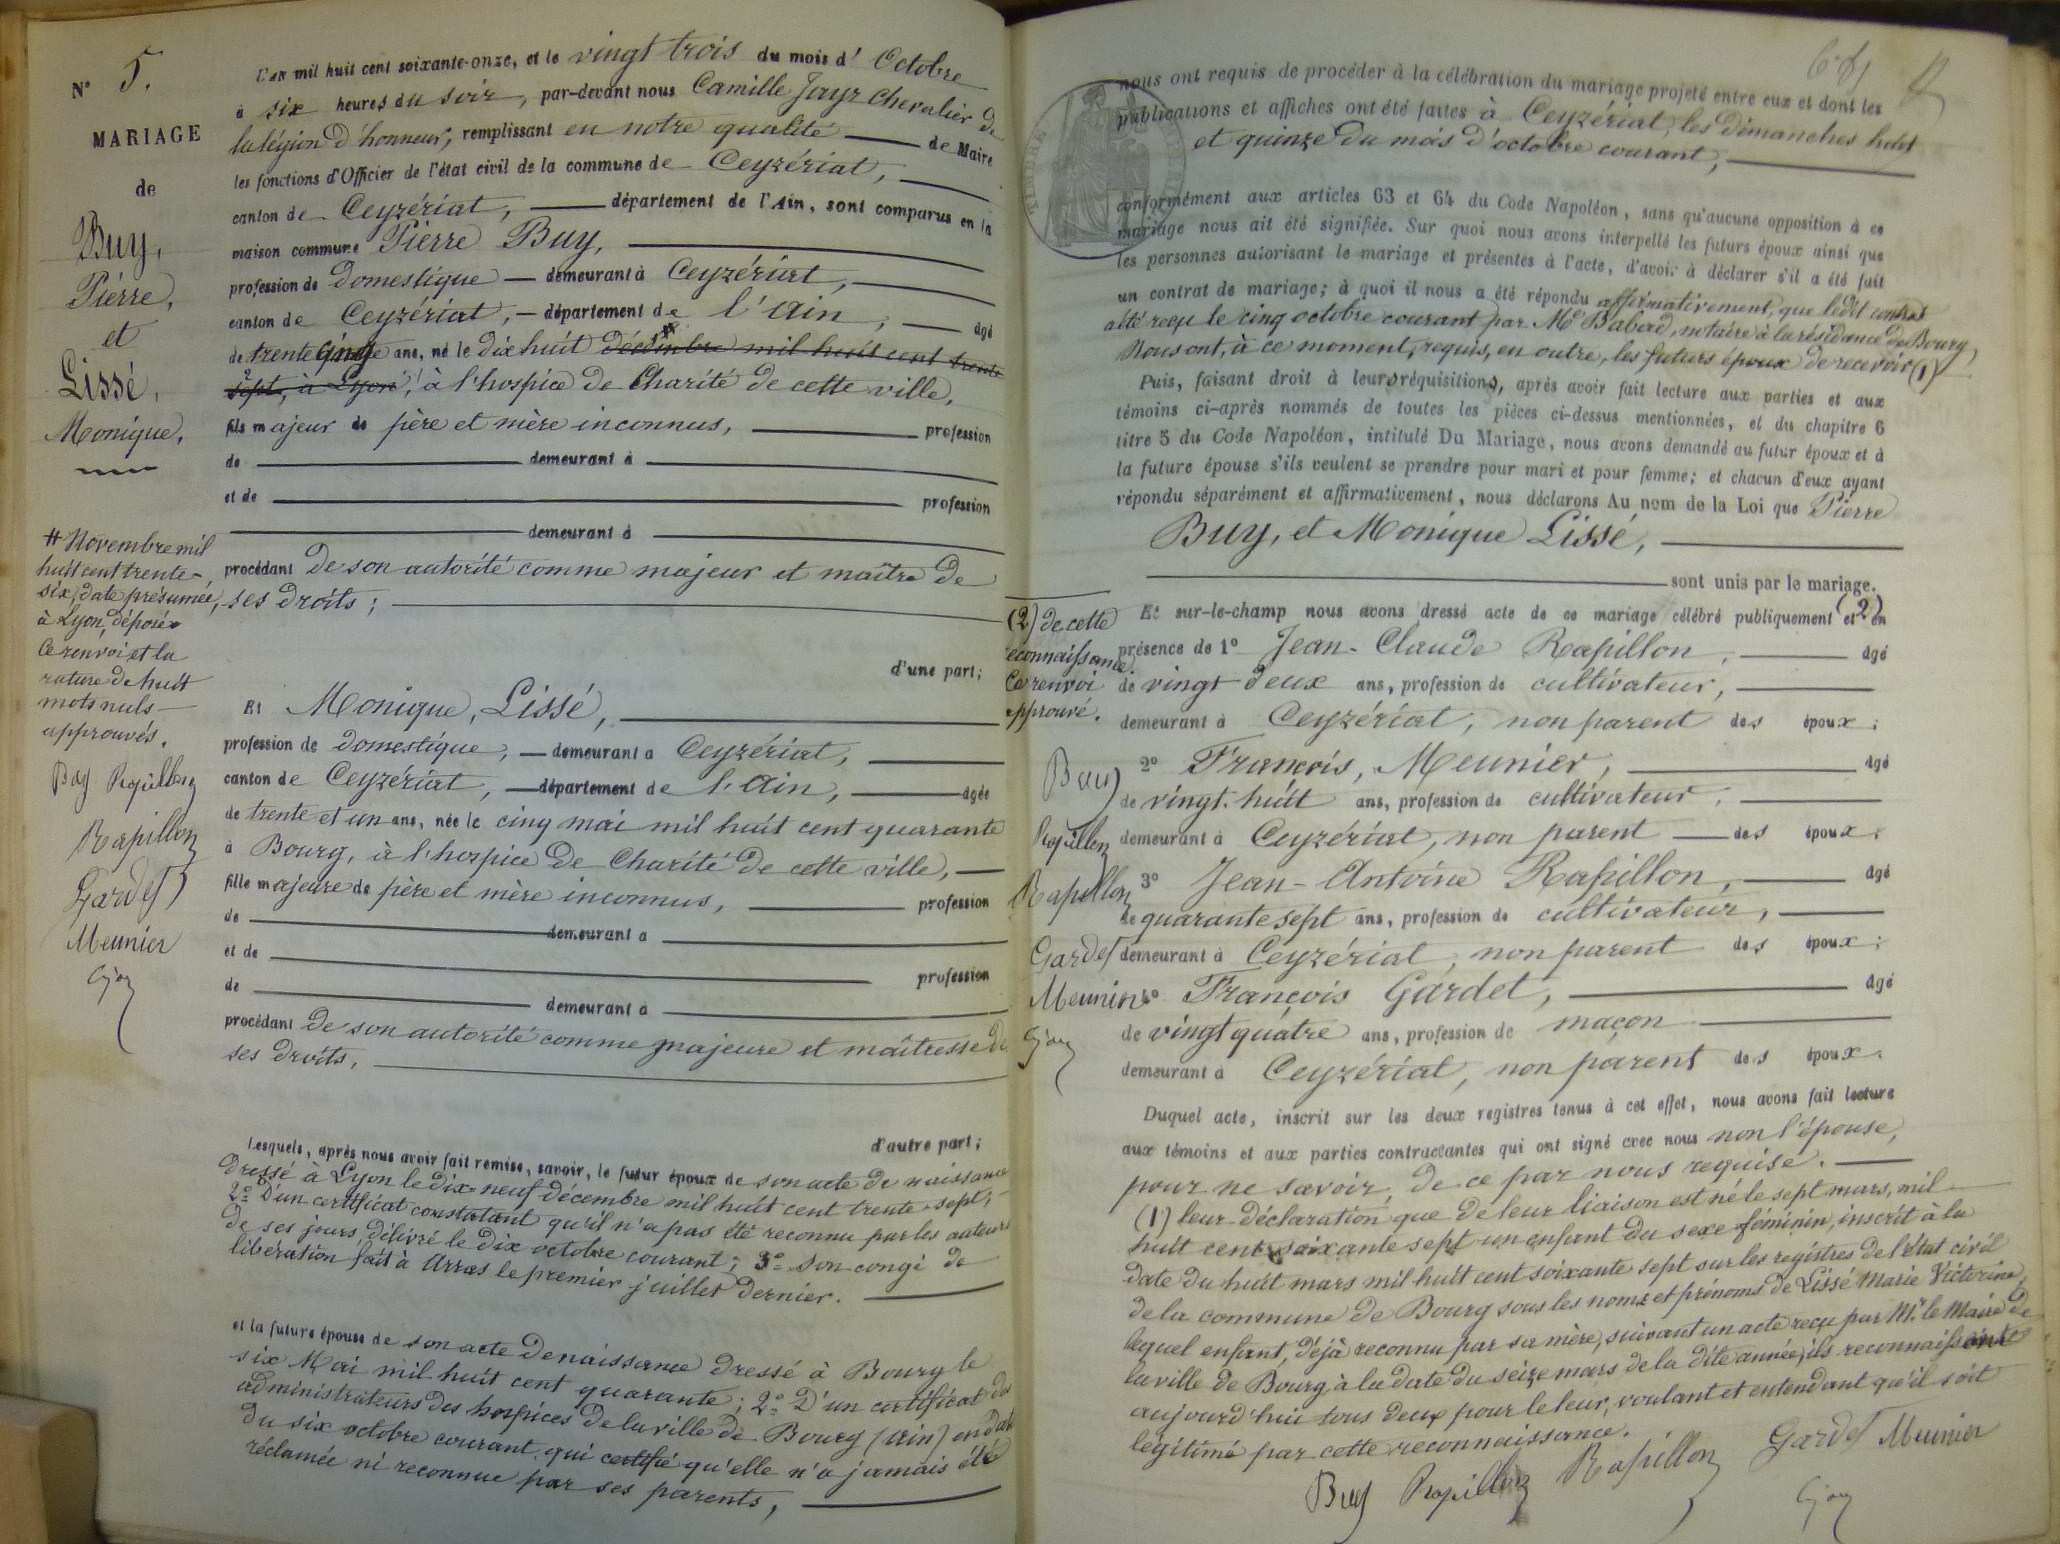 N° 5.
MARIAGE
de
Buy,
Pierre,
et
Lissé,
Monique,
L'an mil huit cent soixante-onze, et le vingt trois du mois d' Octobre
à six heures du soir, par-devant nous Camille Jayr chevalier de
la légion d'honneur, remplissant en notre qualité de Maire
les fonctions d'Officier de l'état civil de la commune de Ceyzériat,
canton de Ceyzériat, département de l'Ain, sont comparus en la
maison commune Pierre Buy,
profession de domestique demeurant à Ceyzériat,
canton de Ceyzériat, département de l'Ain, âgé
de trente cinq ans, né le dix huit décembre mil huit cent trente
sept, à Lyon, à l'hospice de Charité de cette ville,
fils majeur de père et mère inconnus, profession
de demeurant à
et de profession
demeurant à
procédant de son autorité comme majeur et maître de
ses droits;
d'une part;
# Novembre mil
huit cent trente-
six, date présumée,
à Lyon, déposé
Ce renvoi et la
rature de huit
mots nuls
approuvés.
Buy Rapillon
Rapillon
Gardet
Meunier
Et Monique, Lissé,
profession de domestique, demeurant à Ceyzériat,
canton de Ceyzériat, département de l'Ain, âgée
de trente et un ans, née le cinq mai mil huit cent quarante
à Bourg, à l'hospice de Charité de cette ville,
fille majeure de père et mère inconnus, profession
de demeurant à
et de profession
de demeurant à
procédant de son autorité comme majeure et maîtresse de
ses droits,
d'autre part;
Lesquels, après nous avoir fait remise, savoir, le futur époux de son acte de naissance
dressé à Lyon le dix-neuf décembre mil huit cent trente-sept;
2° D'un certificat constatant qu'il n'a pas été reconnu par les auteurs
de ses jours, délivré le dix octobre courant; 3° son congé de
libération fait à Arras le premier juillet dernier.
et la future épouse de son acte de naissance dressé à Bourg le
six Mai mil huit cent quarante; 2° D'un certificat des
administrateurs des hospices de la ville de Bourg (Ain) en date
du six octobre courant qui certifie qu'elle n'a jamais été
réclamée ni reconnue par ses parents,
nous ont requis de procéder à la célébration du mariage projeté entre eux et dont les
publications et affiches ont été faites à Ceyzériat, les dimanches huit
et quinze du mois d'octobre courant,
TIMBRE
conformément aux articles 63 et 64 du Code Napoléon, sans qu'aucune opposition à ce
mariage nous ait été signifiée. Sur quoi nous avons interpellé les futurs époux ainsi que
les personnes autorisant le mariage et présentes à l'acte, d'avoir à déclarer s'il a été fait
un contrat de mariage; à quoi il nous a été répondu affirmativement, que ledit contrat
a été reçu le cinq octobre courant par Me Babad, notaire à la résidence de Bourg,
Nous ont, à ce moment, requis, en outre, les futurs époux de recevoir (1)
Puis, faisant droit à leurs réquisitions, après avoir fait lecture aux parties et aux
témoins ci-après nommés de toutes les pièces ci-dessus mentionnées, et du chapitre 6
titre 5 du Code Napoléon, intitulé Du Mariage, nous avons demandé au futur époux et à
la future épouse s'ils veulent se prendre pour mari et pour femme; et chacun d'eux ayant
répondu séparément et affirmativement, nous déclarons Au nom de la Loi que Pierre
Buy, et Monique Lissé,
sont unis par le mariage.
Et sur-le-champ nous avons dressé acte de ce mariage célébré publiquement et (2) en
présence de 1° Jean-Claude Rapillon, âgé
de vingt deux ans, profession de cultivateur,
demeurant à Ceyzériat, non parent des époux;
2° François, Meunier, âgé
de vingt-huit ans, profession de cultivateur,
demeurant à Ceyzériat, non parent des époux;
3° Jean-Antoine Rapillon, âgé
de quarante sept ans, profession de cultivateur,
demeurant à Ceyzériat, non parent des époux;
4° François Gardet, âgé
de vingt quatre ans, profession de maçon
demeurant à Ceyzériat, non parent des époux.
(2) de cette
reconnaissance.
Ce renvoi
approuvé.
Buy
Rapillon
Rapillon
Gardet
Meunier
Duquel acte, inscrit sur les deux registres tenus à cet effet, nous avons fait lecture
aux témoins et aux parties contractantes qui ont signé avec nous non l'épouse,
pour ne savoir, de ce par nous requise.
(1) leur déclaration que de leur liaison est né le sept mars, mil
huit cent soixante sept un enfant du sexe féminin, inscrit à la
date du huit mars mil huit cent soixante sept sur les registres de l'état civil
de la commune de Bourg sous les noms et prénoms de Lissé Marie Victorine,
lequel enfant, déjà reconnu par sa mère, suivant un acte reçu par Mr. le Maire de
la ville de Bourg à la date du seize mars de la dite année, ils reconnaissent
aujourd'hui tous deux pour le leur, voulant et entendant qu'il soit
légitimé par cette reconnaissance.
Buy Rapillon Rapillon Gardet Meunier